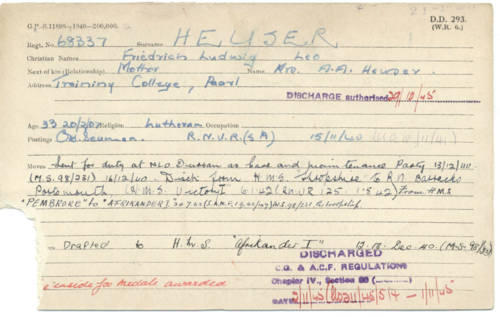 G.P.-S.11608-1940-200,000.
D.D. 293.
(W.R. 6.)
Regt. No. 69337 Surname HEUSER
Christian Names Friedrich Ludwig Leo
Next of kin (Relationship) Mother Name Mrs. A.A. Heuser
Address Training College, Paarl
DISCHARGE authorised 29/10/45
Age 33 20/2/07 Religion Lutheran Occupation
Postings Ord. Seaman R.N.V.R (S A) 15/11/40
Moves Sent for duty at NLO Durban as base and maintenance Party 13/12/40
(M.S. 98/281) 16/12/40. Disch from H.M.S. Shropshire to R.N. Barracks
Portsmouth H.M.S. Victory I 6.1.42 From H.M.S.
"PEMBROKE" to "AFRIKANDER I"
Drafted to H.M.S. "Afrikander I" 12-13-Dec-40.
DISCHARGED
C.G. & A.C.F. REGULATIONS
Chapter IV., Section
DATE 2/11/45 - 1/11/45
inside for medals awarded